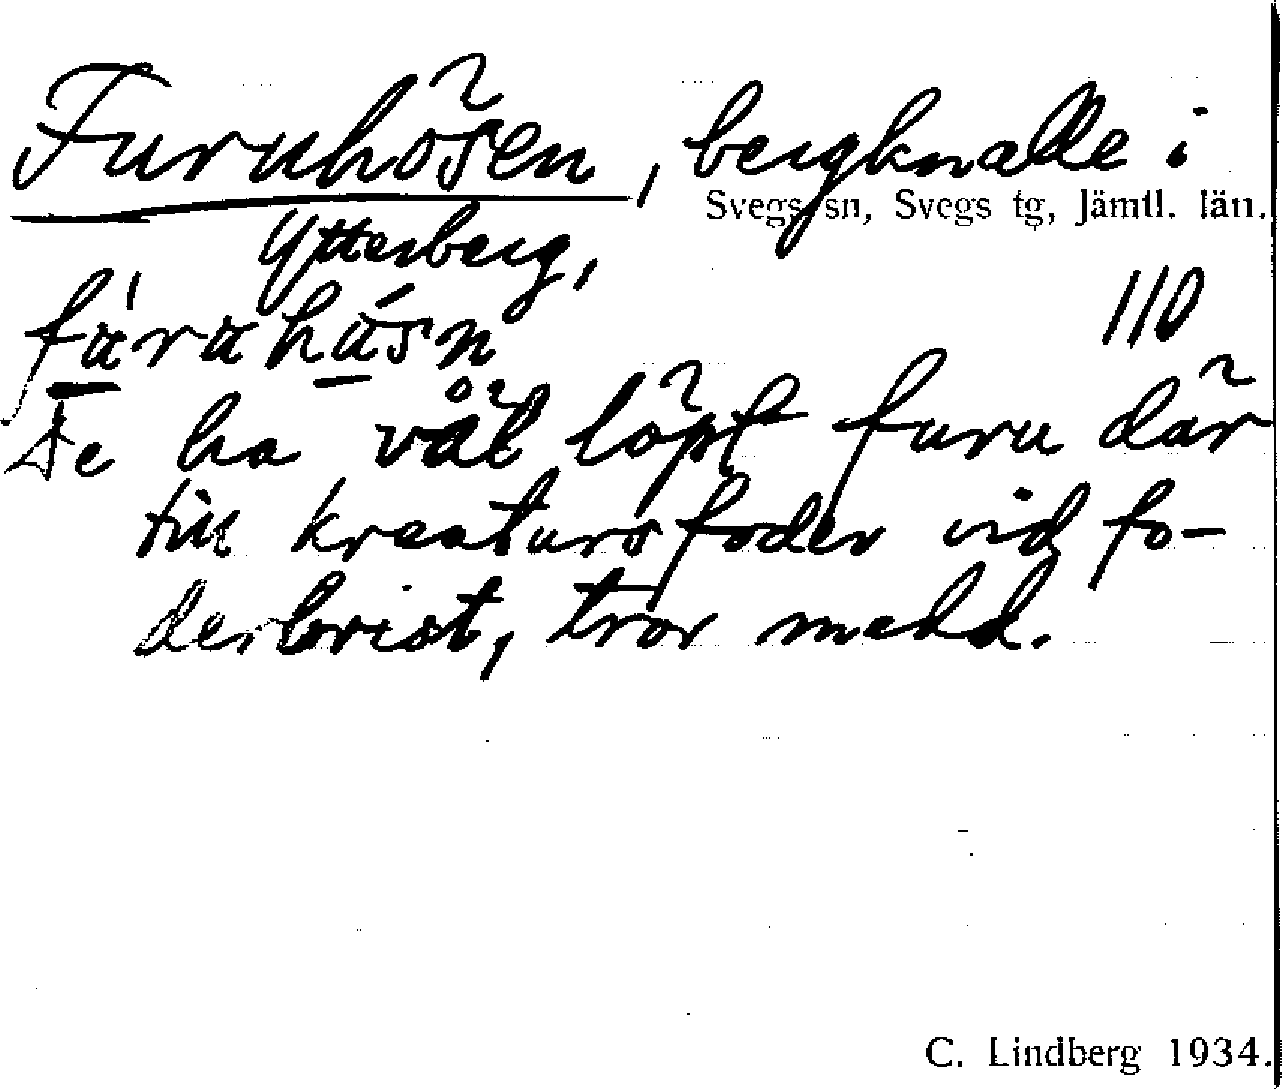 Furuhösen, bergknalle i
Svegs sn, Svegs tg, Jämtl. län.
Ytterberg,
110
De ha väl löpt furu där
till kreatursfoder vid fo-
derbrist, tror medd.
C. Lindberg 1934.